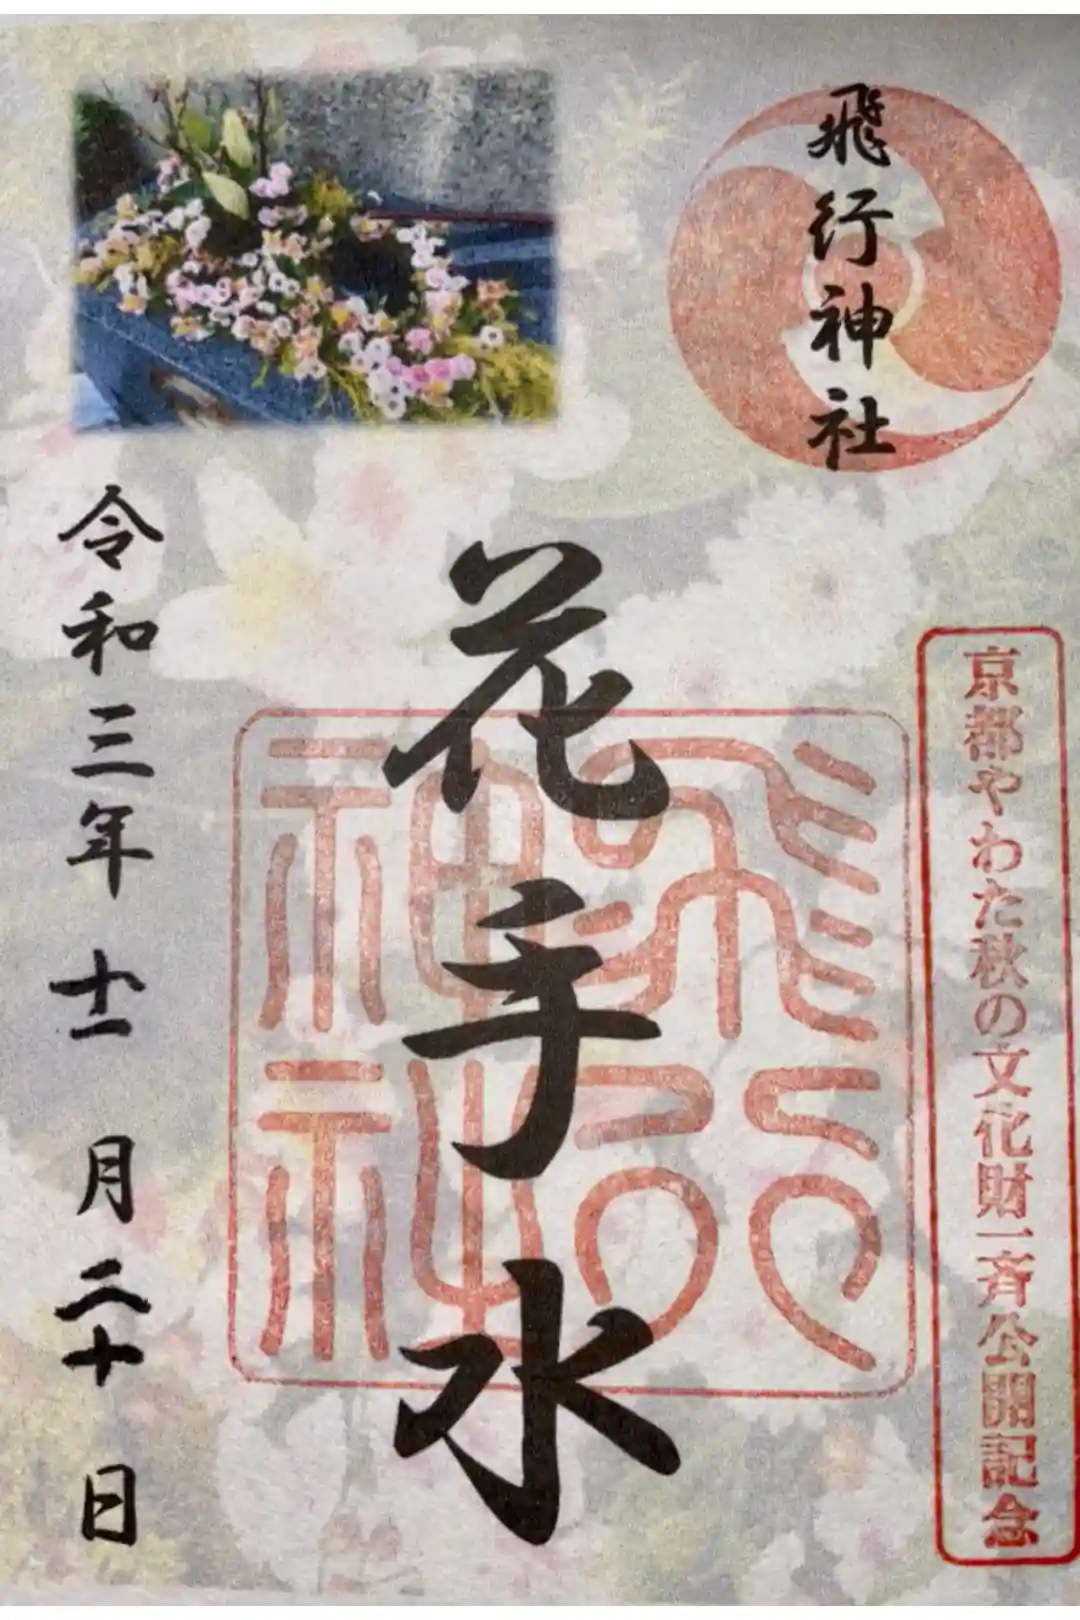 飛行神社
京都やわた秋の文化財一斉公開記念
花手水
飛行
神社
令和三年 十一月 二十日